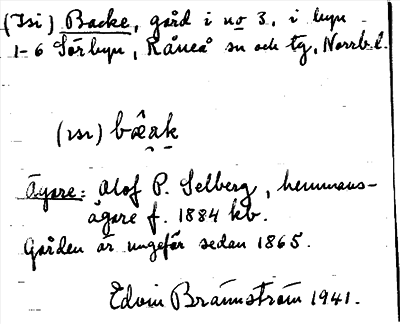 (Isi) Backe, gård i no 3, i byn
1-6 Sörbyn, Råneå sn och tg, Norrb.l.
(isi) bêak
Ägare: Olof P. Selberg, hemmans-
ägare f. 1884 kb.
Gården är ungefär sedan 1865.
Edvin Brännström 1941.